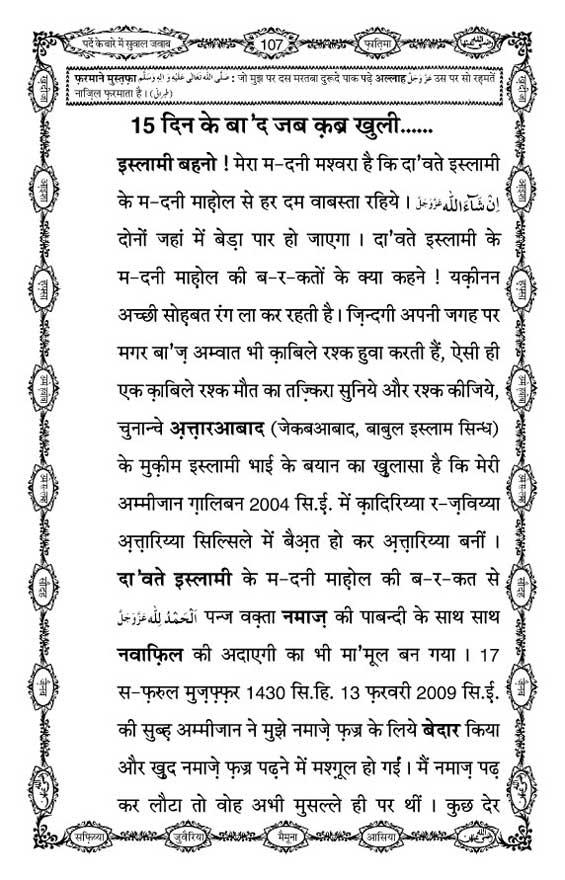 पर्दे के बारे में सुवाल जवाब
107
फ़ातिमा
फ़रमाने मुस्तफ़ा صَلَّى اللهُ تَعَالٰى عَلَيْهِ وَاٰلِهٖ وَسَلَّم : जो मुझ पर दस मरतबा दुरूदे पाक पढ़े अल्लाह عَزَّوَجَلَّ उस पर सो रहमतें
नाज़िल फ़रमाता है । (طبرانی)
15 दिन के बा'द जब क़ब्र खुली......
इस्लामी बहनो ! मेरा म-दनी मश्वरा है कि दा'वते इस्लामी
के म-दनी माह़ोल से हर दम वाबस्ता रहिये । اِنْ شَآءَ اللّٰه عَزَّوَجَلَّ
दोनों जहां में बेड़ा पार हो जाएगा । दा'वते इस्लामी के
म-दनी माह़ोल की ब-र-कतों के क्या कहने ! यक़ीनन
अच्छी सोह़बत रंग ला कर रहती है । ज़िन्दगी अपनी जगह पर
मगर बा'ज़ अम्वात भी क़ाबिले रश्क हुवा करती हैं, ऐसी ही
एक क़ाबिले रश्क मौत का तज़्किरा सुनिये और रश्क कीजिये,
चुनान्चे अ़त्त़ारआबाद (जेकबआबाद, बाबुल इस्लाम सिन्ध)
के मुक़ीम इस्लामी भाई के बयान का खुलासा है कि मेरी
अम्मीजान ग़ालिबन 2004 सि.ई. में क़ादिरिय्या र-ज़विय्या
अ़त्त़ारिय्या सिल्सिले में बैअ़त हो कर अ़त्त़ारिय्या बनीं ।
दा'वते इस्लामी के म-दनी माह़ोल की ब-र-कत से
اَلْحَمْدُ لِلّٰه عَزَّوَجَلَّ पन्ज वक़्ता नमाज़ की पाबन्दी के साथ साथ
नवाफ़िल की अदाएगी का भी मा'मूल बन गया । 17
स-फ़रुल मुज़फ़्फ़र 1430 सि.हि. 13 फ़रवरी 2009 सि.ई.
की सुब्ह़ अम्मीजान ने मुझे नमाज़े फ़ज्र के लिये बेदार किया
और खुद नमाज़े फ़ज्र पढ़ने में मश्ग़ूल हो गईं । मैं नमाज़ पढ़
कर लौटा तो वोह अभी मुसल्ले ही पर थीं । कुछ देर
सफ़िय्या
जुवैरिया
मैमूना
आसिया